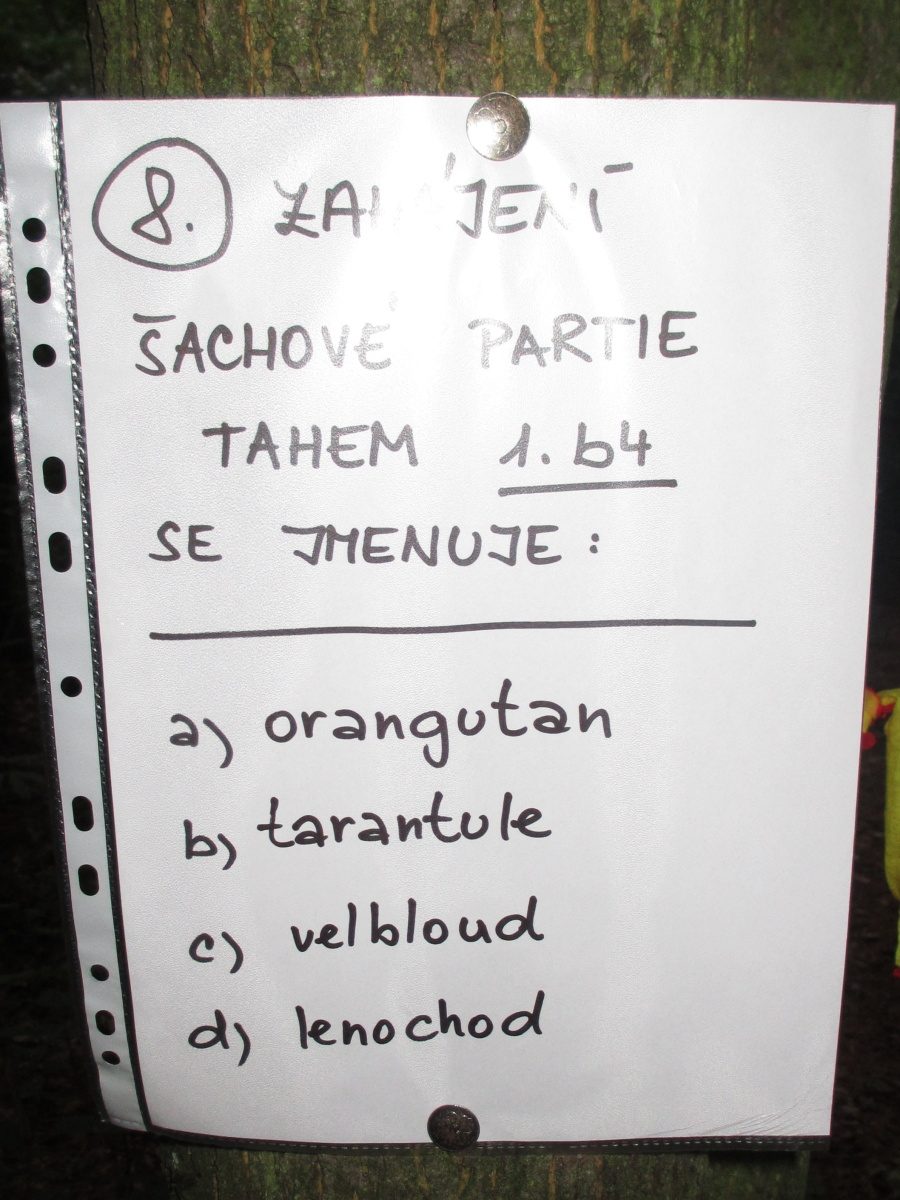 8. ZAHÁJENÍ
ŠACHOVÉ PARTIE
TAHEM 1. b4
SE JMENUJE:
a) orangutan
b) tarantule
c) velbloud
d) lenochod